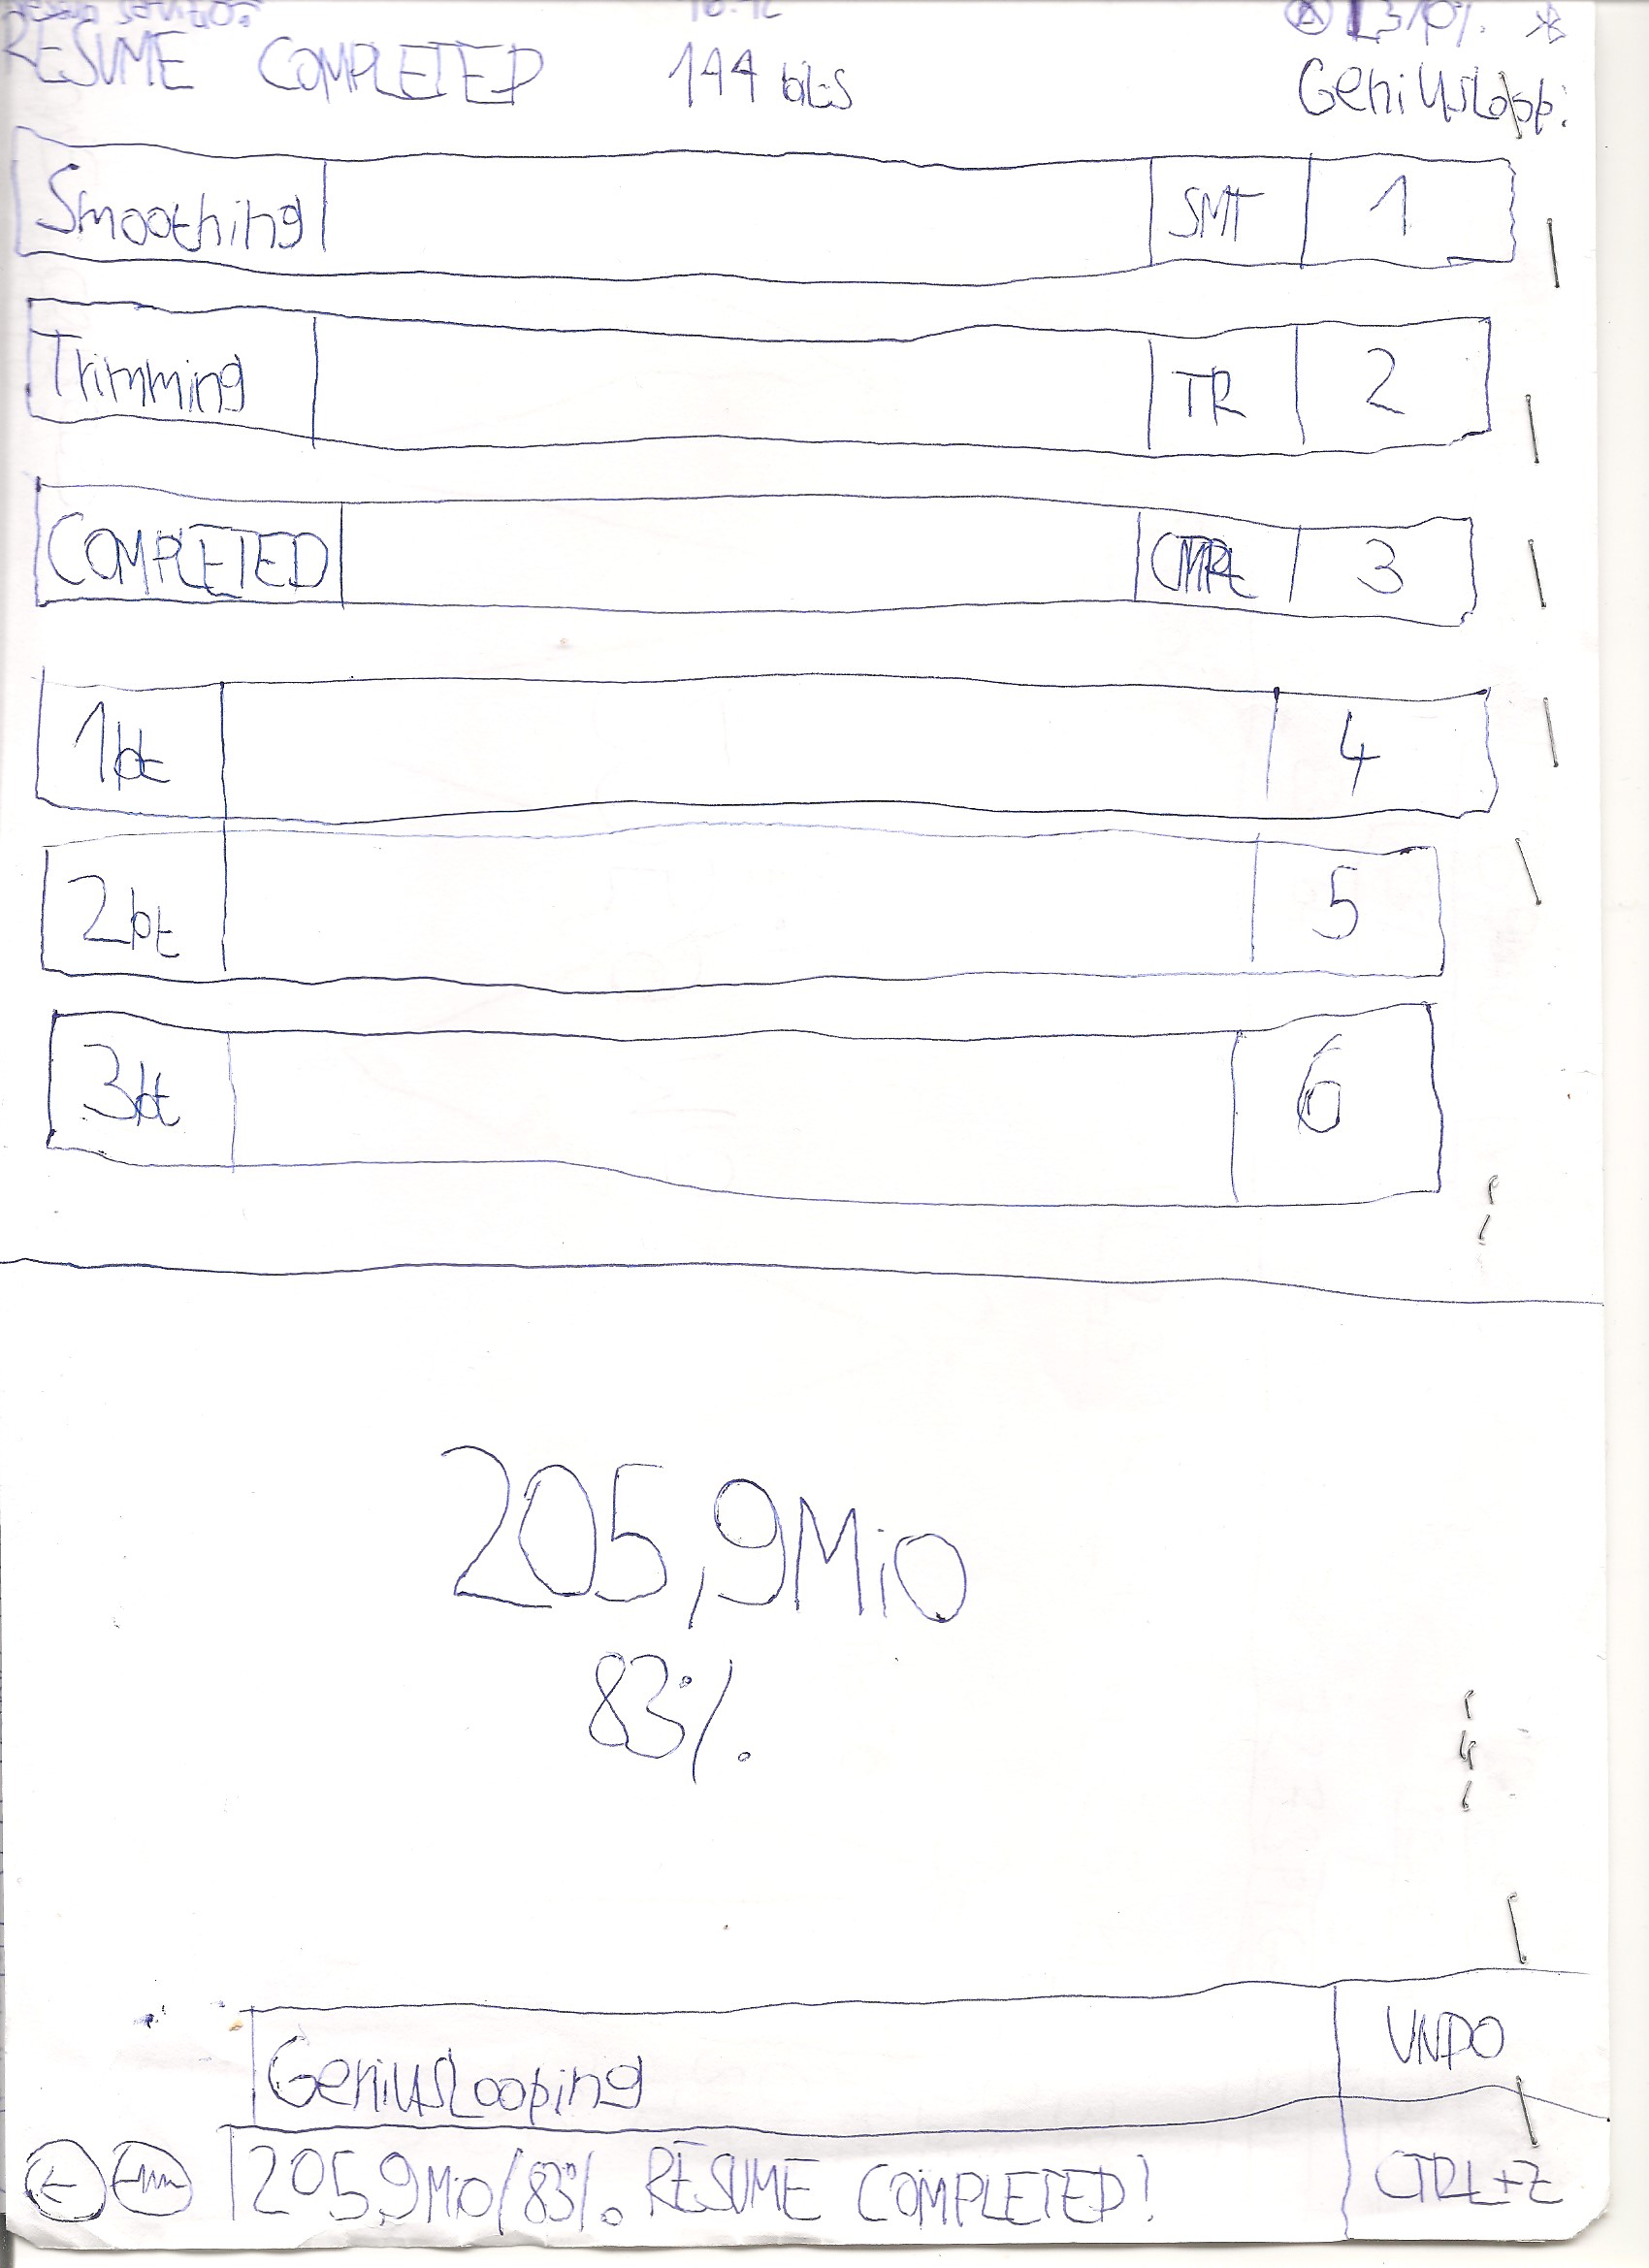 RESUME COMPLETED 144 bits GeniusLoop:
Smoothing SMT 1
Trimming TR 2
COMPLETED CMPL 3
1bt 4
2bt 5
3bt 6
205,9Mio
83%
GeniusLooping UNDO
205,9Mio/83% RESUME COMPLETED! CTRL+Z